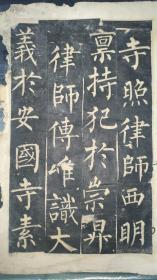 寺照律師西明
禀持犯於崇昇
律師傳唯識大
義於安國寺素